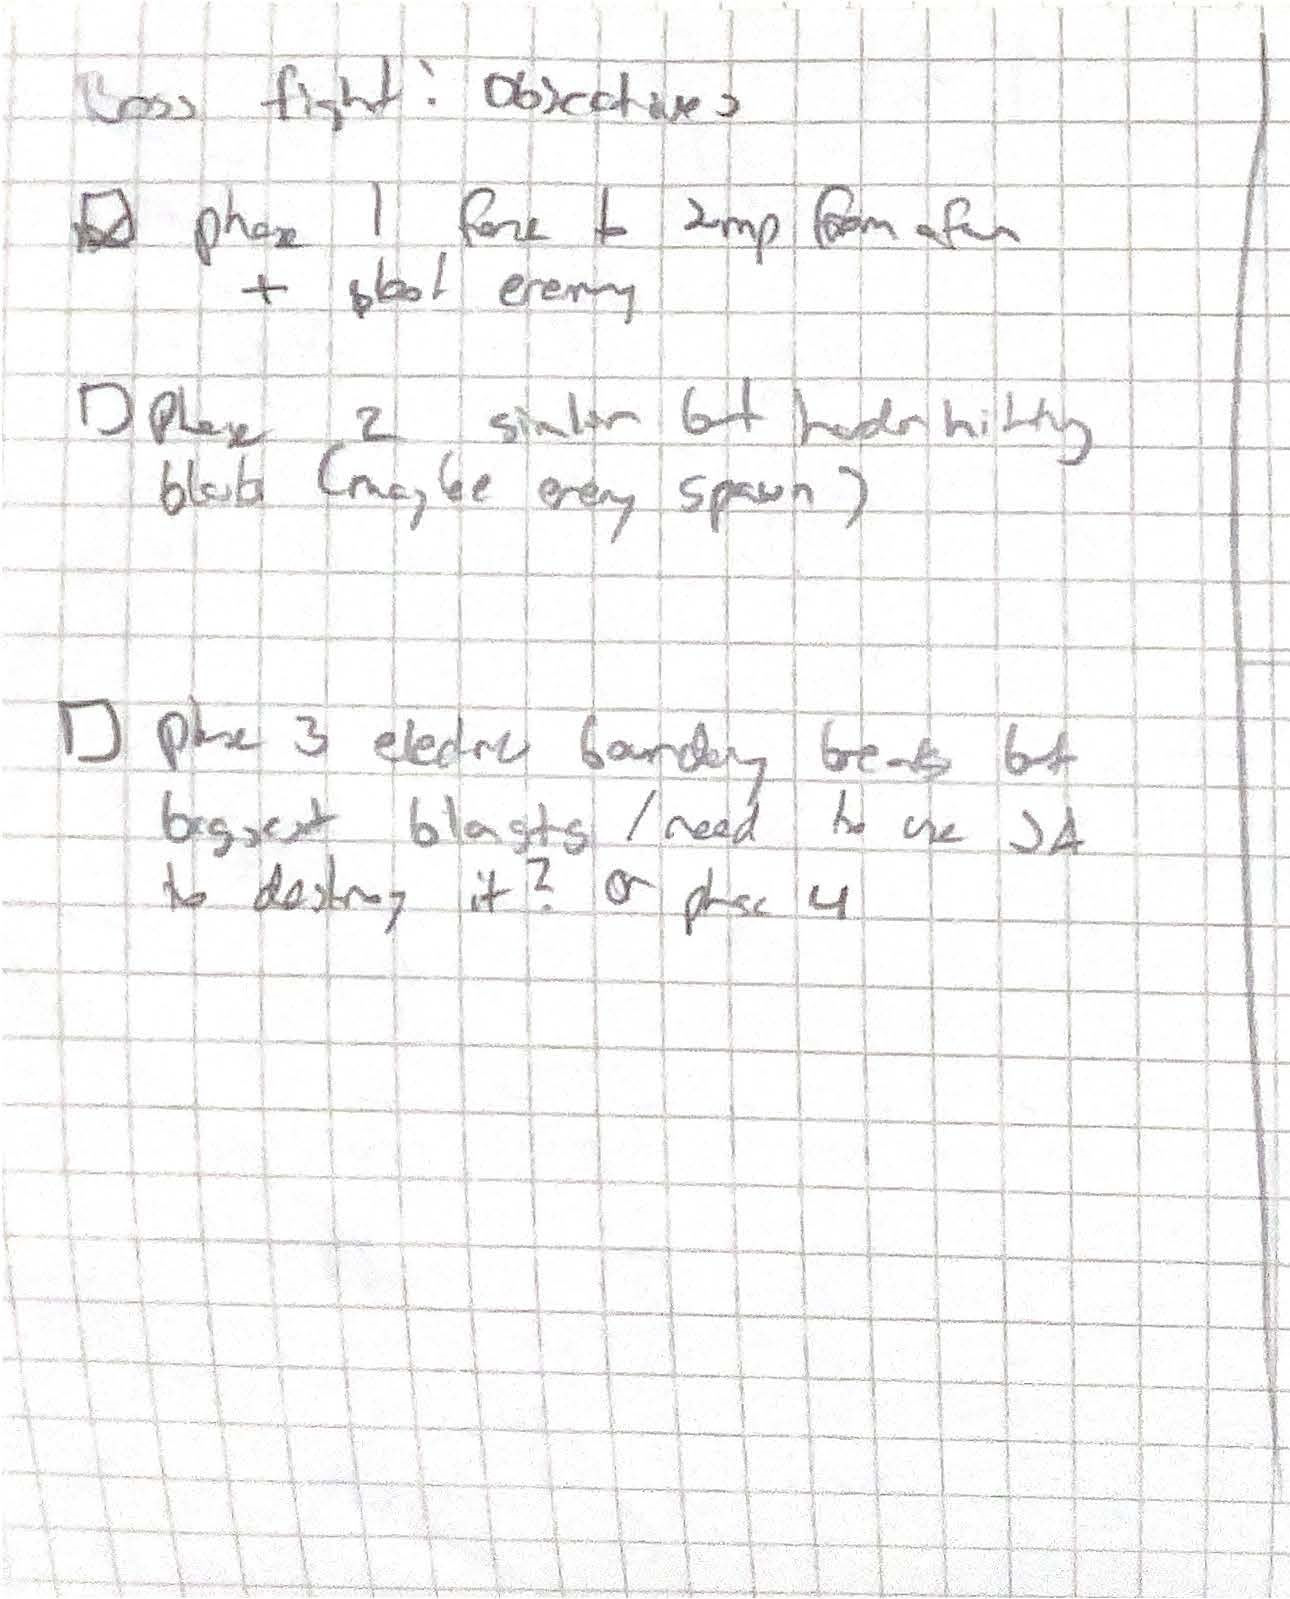 Boss fight: Objectives
phase 1 force to jump from afar
+ shoot enemy
Phase 2 similar but harder hitting
blasts (maybe enemy spawn)
phase 3 electric boundary breaks but
biggest blasts / need to use
to destroy it? or phase 4